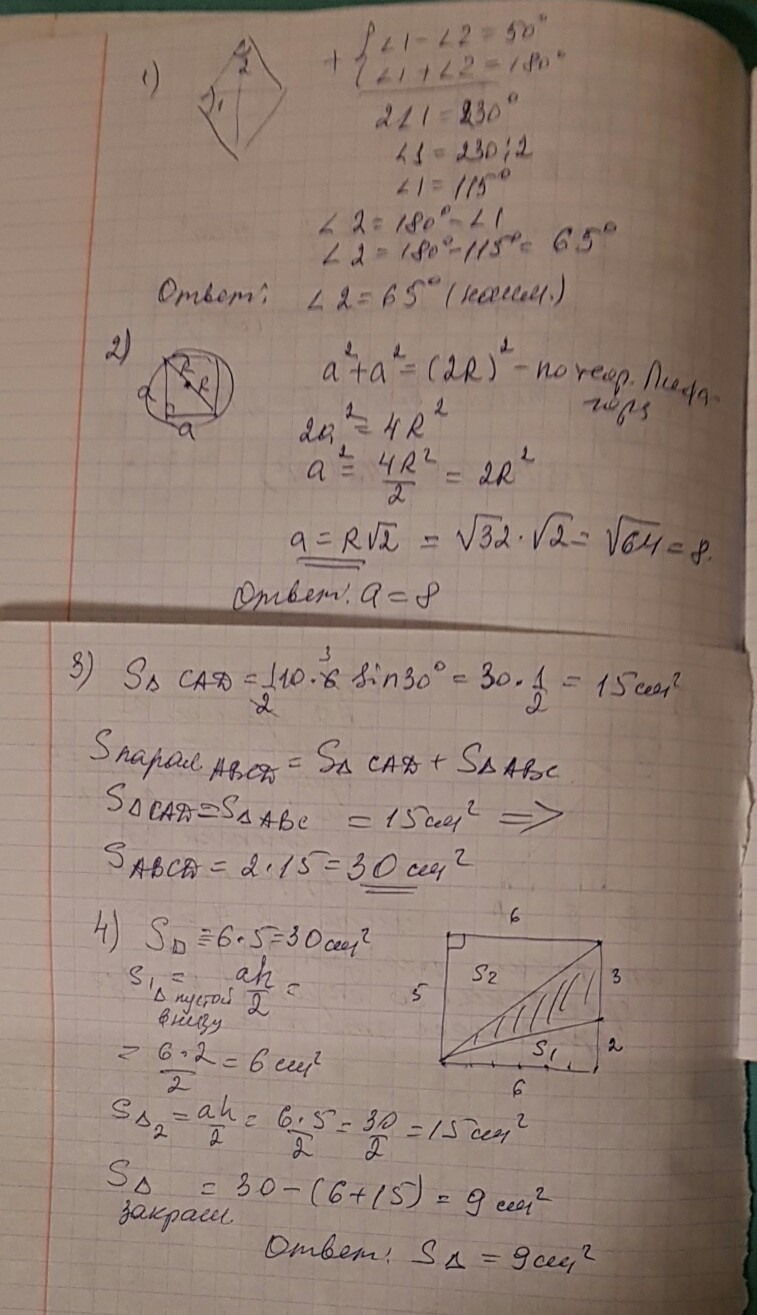 1) 2 1 + { ∠1 - ∠2 = 50°
∠1 + ∠2 = 180°
2∠1 = 230°
∠1 = 230:2
∠1 = 115°
∠2 = 180° - ∠1
∠2 = 180° - 115° = 65°
Ответ: ∠2 = 65° (наим.)
2) R R a a a² + a² = (2R)² - по теор. Пифа-
гора
2a² = 4R²
a² = 4R²/2 = 2R²
a = R√2 = √32 · √2 = √64 = 8.
Ответ: a = 8
3) S∆ CAD = 1/2 10 · 6 3 sin30° = 30 · 1/2 = 15 см²
S парал ABCD = S∆ CAD + S∆ ABC
S∆CAD = S∆ABC = 15 см² ⇒
SABCD = 2·15 = 30 см²
4) S□ = 6·5 = 30 см²
S1 ∆ пустой внизу = ah/2 =
= 6·2/2 = 6 см²
S∆2 = ah/2 = 6·5/2 = 30/2 = 15 см²
S∆ закраш = 30 - (6+15) = 9 см²
Ответ: S∆ = 9 см²
6
S2
5
3
S1
2
6